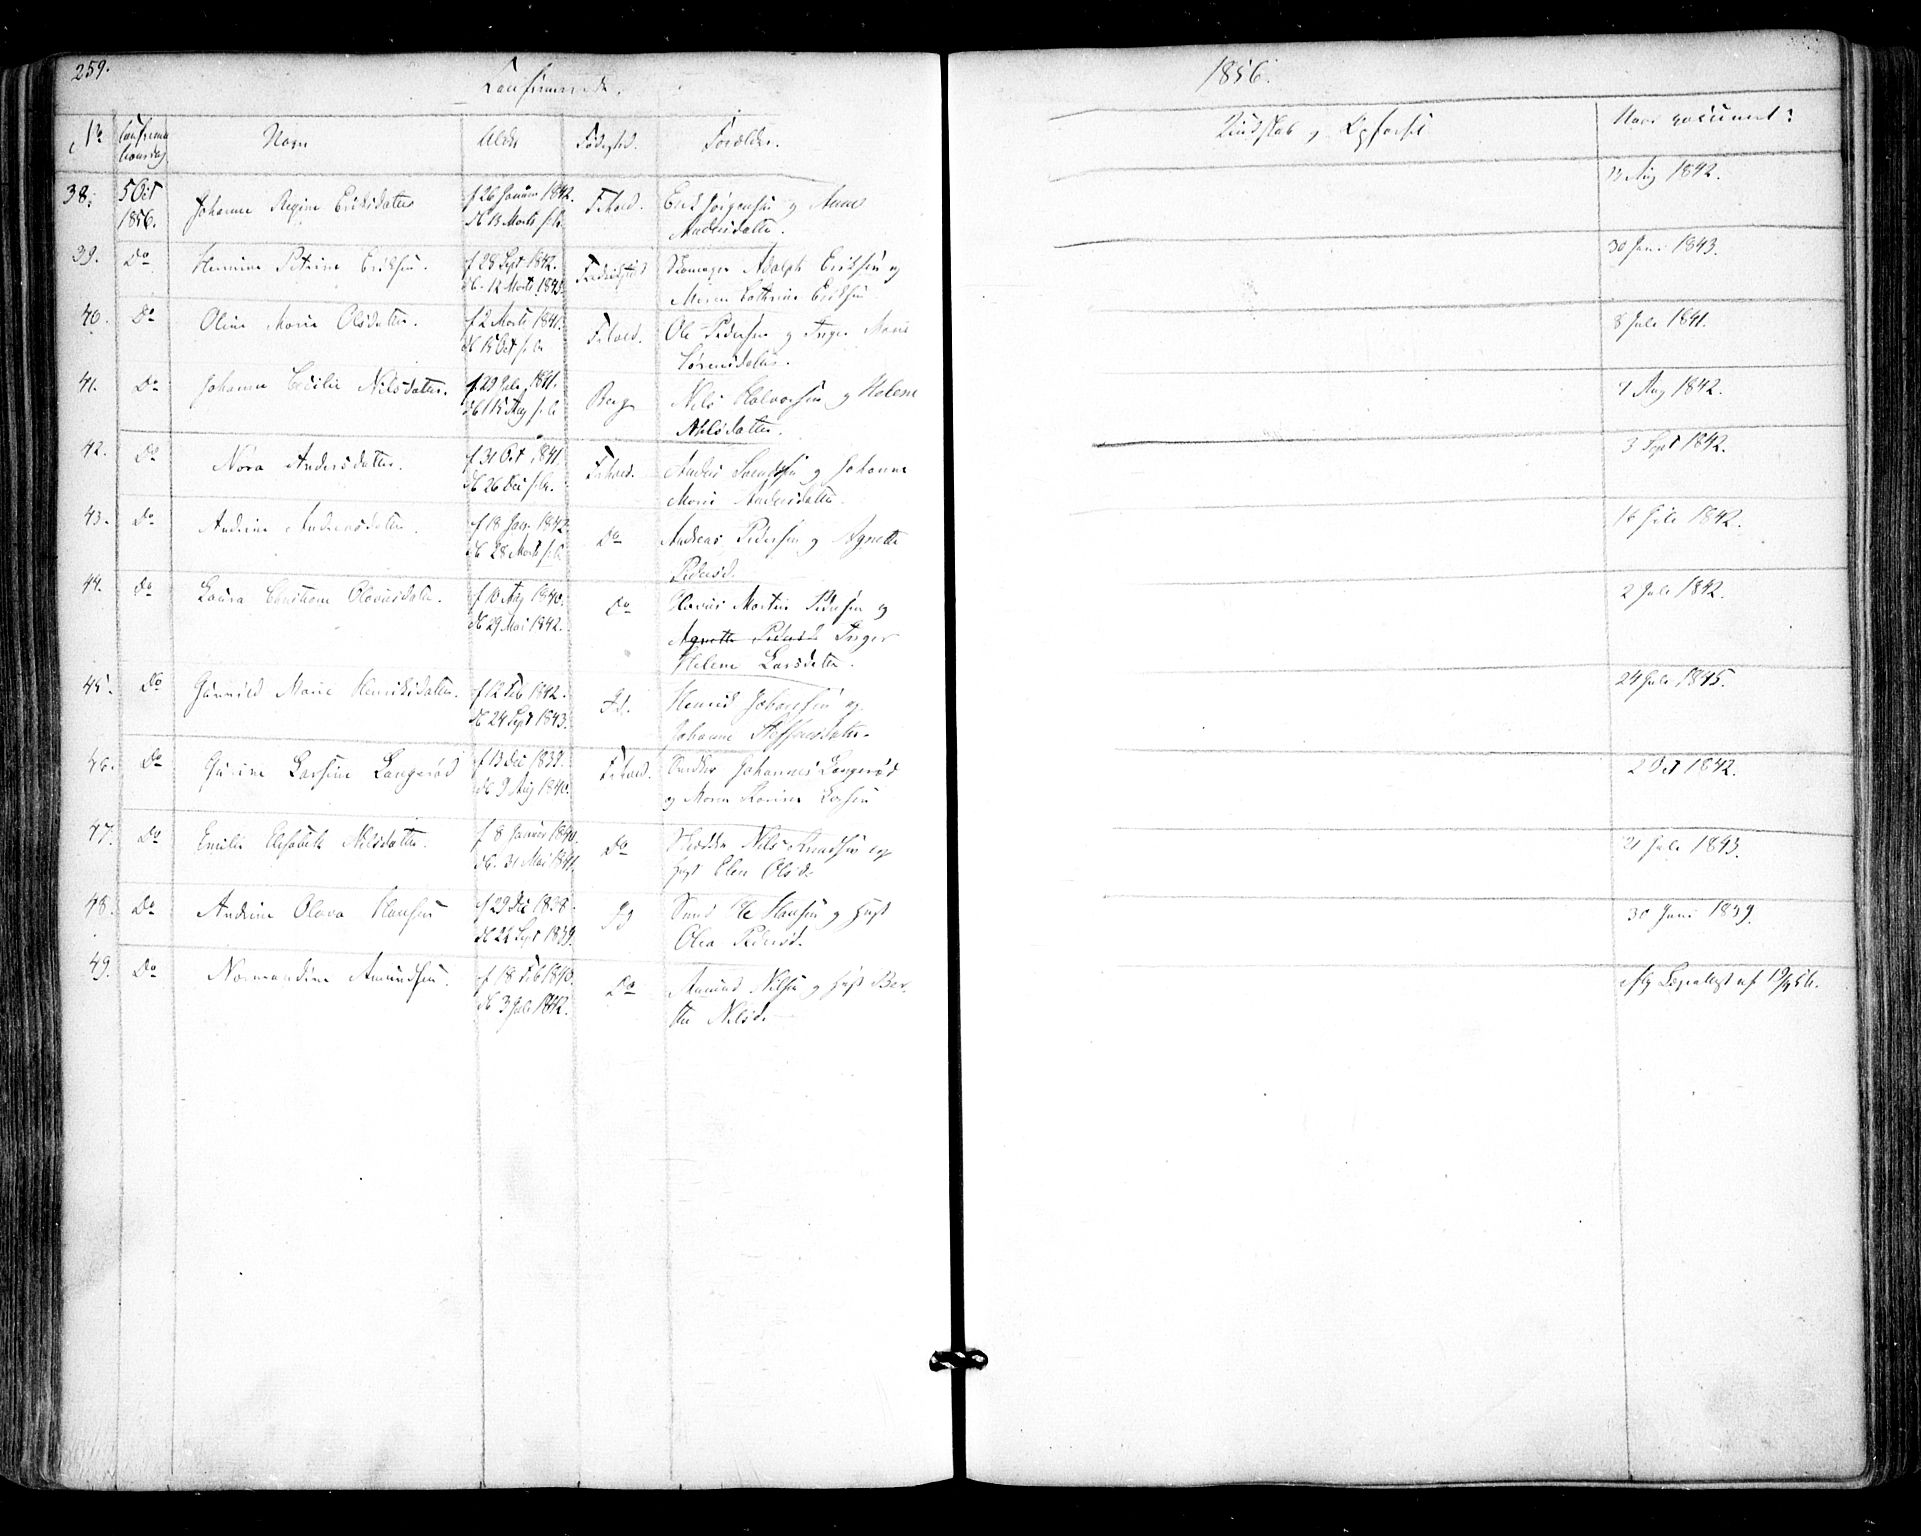 259.
Confirmerede.
1856.
No
Confirmationsdag
Navn
Alder
Fødested.
Forældre.
Kundskab og Opførsel
Naar vaccineret?
38. 5 Oct 1856. Johanne Regine Eriksdatter f 26 Januar 1842. db 13 Marts s. A. Frhald. Erik Jørgensen og Anne Andersdatter. 13 Aug 1842.
39. Do Hermine Petrine Eriksen. f 28 Sept 1842. db. 12 Marts 1843. Fredrikstad Skomager Adolph Eriksen og Maren Cathrine Eriksen 30 Juni 1843.
40. Do Oline Marie Olsdatter. f 2 Marts 1841. db 15 Oct s. A. Frhald. Ole Pedersen og Inger Marie Sørensdatter. 8 Juli 1841.
41. Do Johanne Cecilie Nilsdatter. f. 29 Juli 1841. db 15 Aug s. A. Berg Nils Halvorsen og Helene Nilsdatter. 7 Aug 1842.
42. Do Nora Andersdatter. f 31 Oct 1841. db 26 Dec s. A. Frhald. Anders Svendsen og Johanne Marie Andersdatter. 3 Sept 1842.
43. Do Andrine Andreasdatter. f 18 Jan 1842. db 28 Marts s. A. Do Andreas Pedersen og Agnette Pedersd. 16 Juli 1842.
44. Do Laura Olavusdatter. f 10 Aug 1840. db 29 Mai 1842. Do Olavus Martin Pedersen og Agnette Pedersd. Inger Helene Larsdatter. 2 Juli 1842.
45. Do Gunnild Marie Henriksdatter. f 12 Feb 1842. db 24 Sept 1843. Id. Henrik Johansen og Johanne Steffensdatter. 24 Juli 1845.
46. Do Gurine Larsine Langerød f 13 Dec 1839. db 9 Aug 1840. Frhald. Snedker Johannes Langerød og Maren Larsen 2 Oct 1842.
47. Do Emilie Elisabeth Nilsdatter. f 8 Januar 1840. db. 31 Mai 1841. Do Nils Knudsen og Hust Elen Olsd. 21 Juli 1843.
48. Do Andrine Olava Hansen f 29 Dec 1838. db 22 Sept 1839. Id Smed Ole Hansen og Hust Olea Pedersd. 30 Juni 1839.
49. Do Normandine Amundsen. f 18 Feb 1840. db 3 Juli 1842. Do Amund Nilsen og Hust Berthe Nilsd. iflg Lægeattest af 19/9 56.